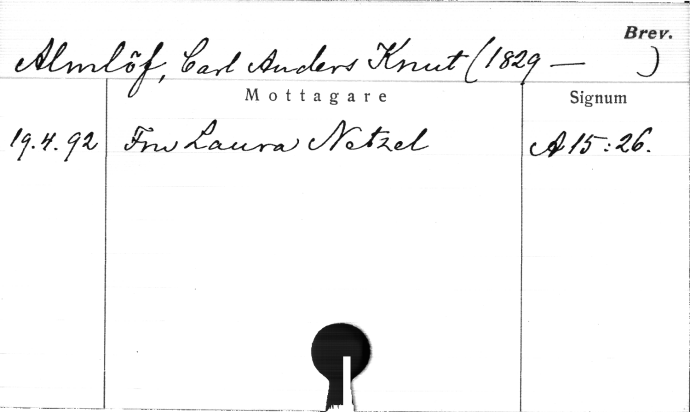 Brev.
Almlöf, Carl Anders Knut (1829 — )
Mottagare Signum
19.4.92 Fru Laura Netzel A15:26.